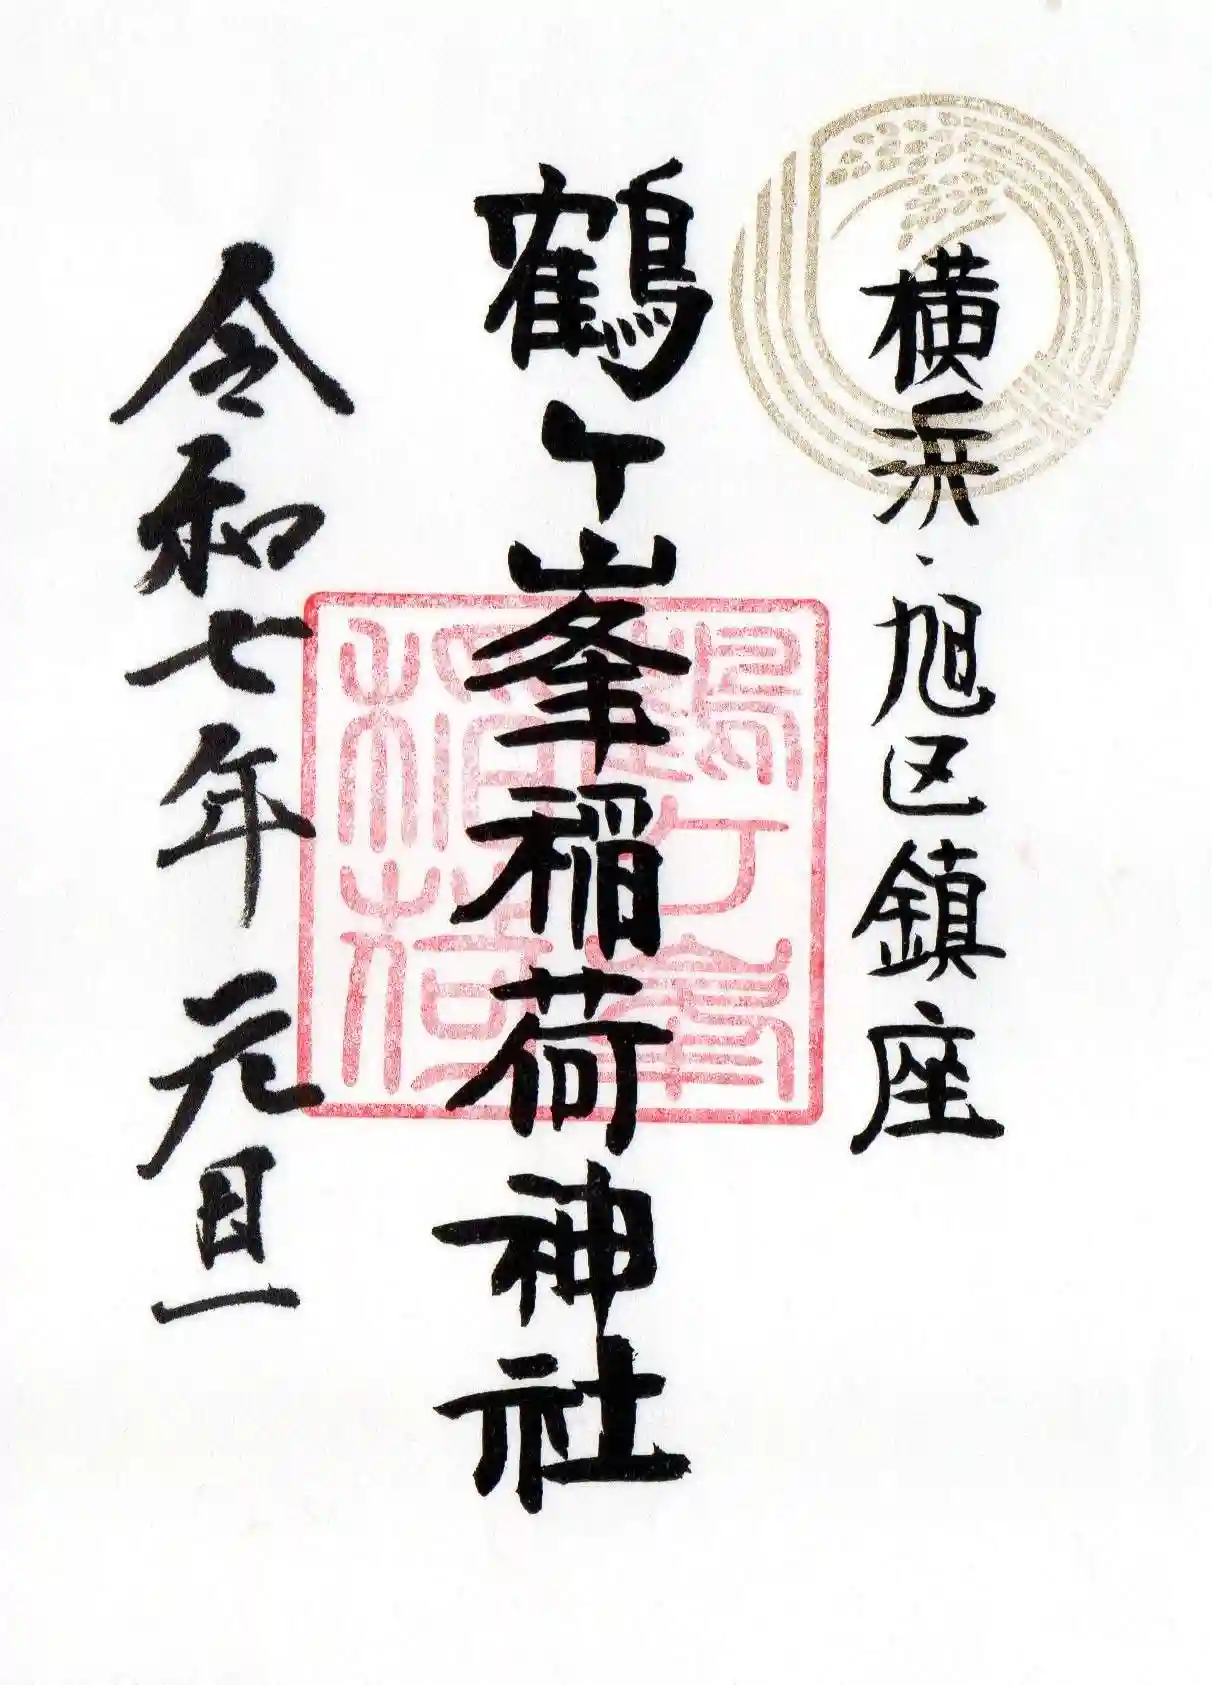 横浜・旭区鎮座
鶴ケ峯稲荷神社
鶴ケ峯
稲荷
令和七年元旦